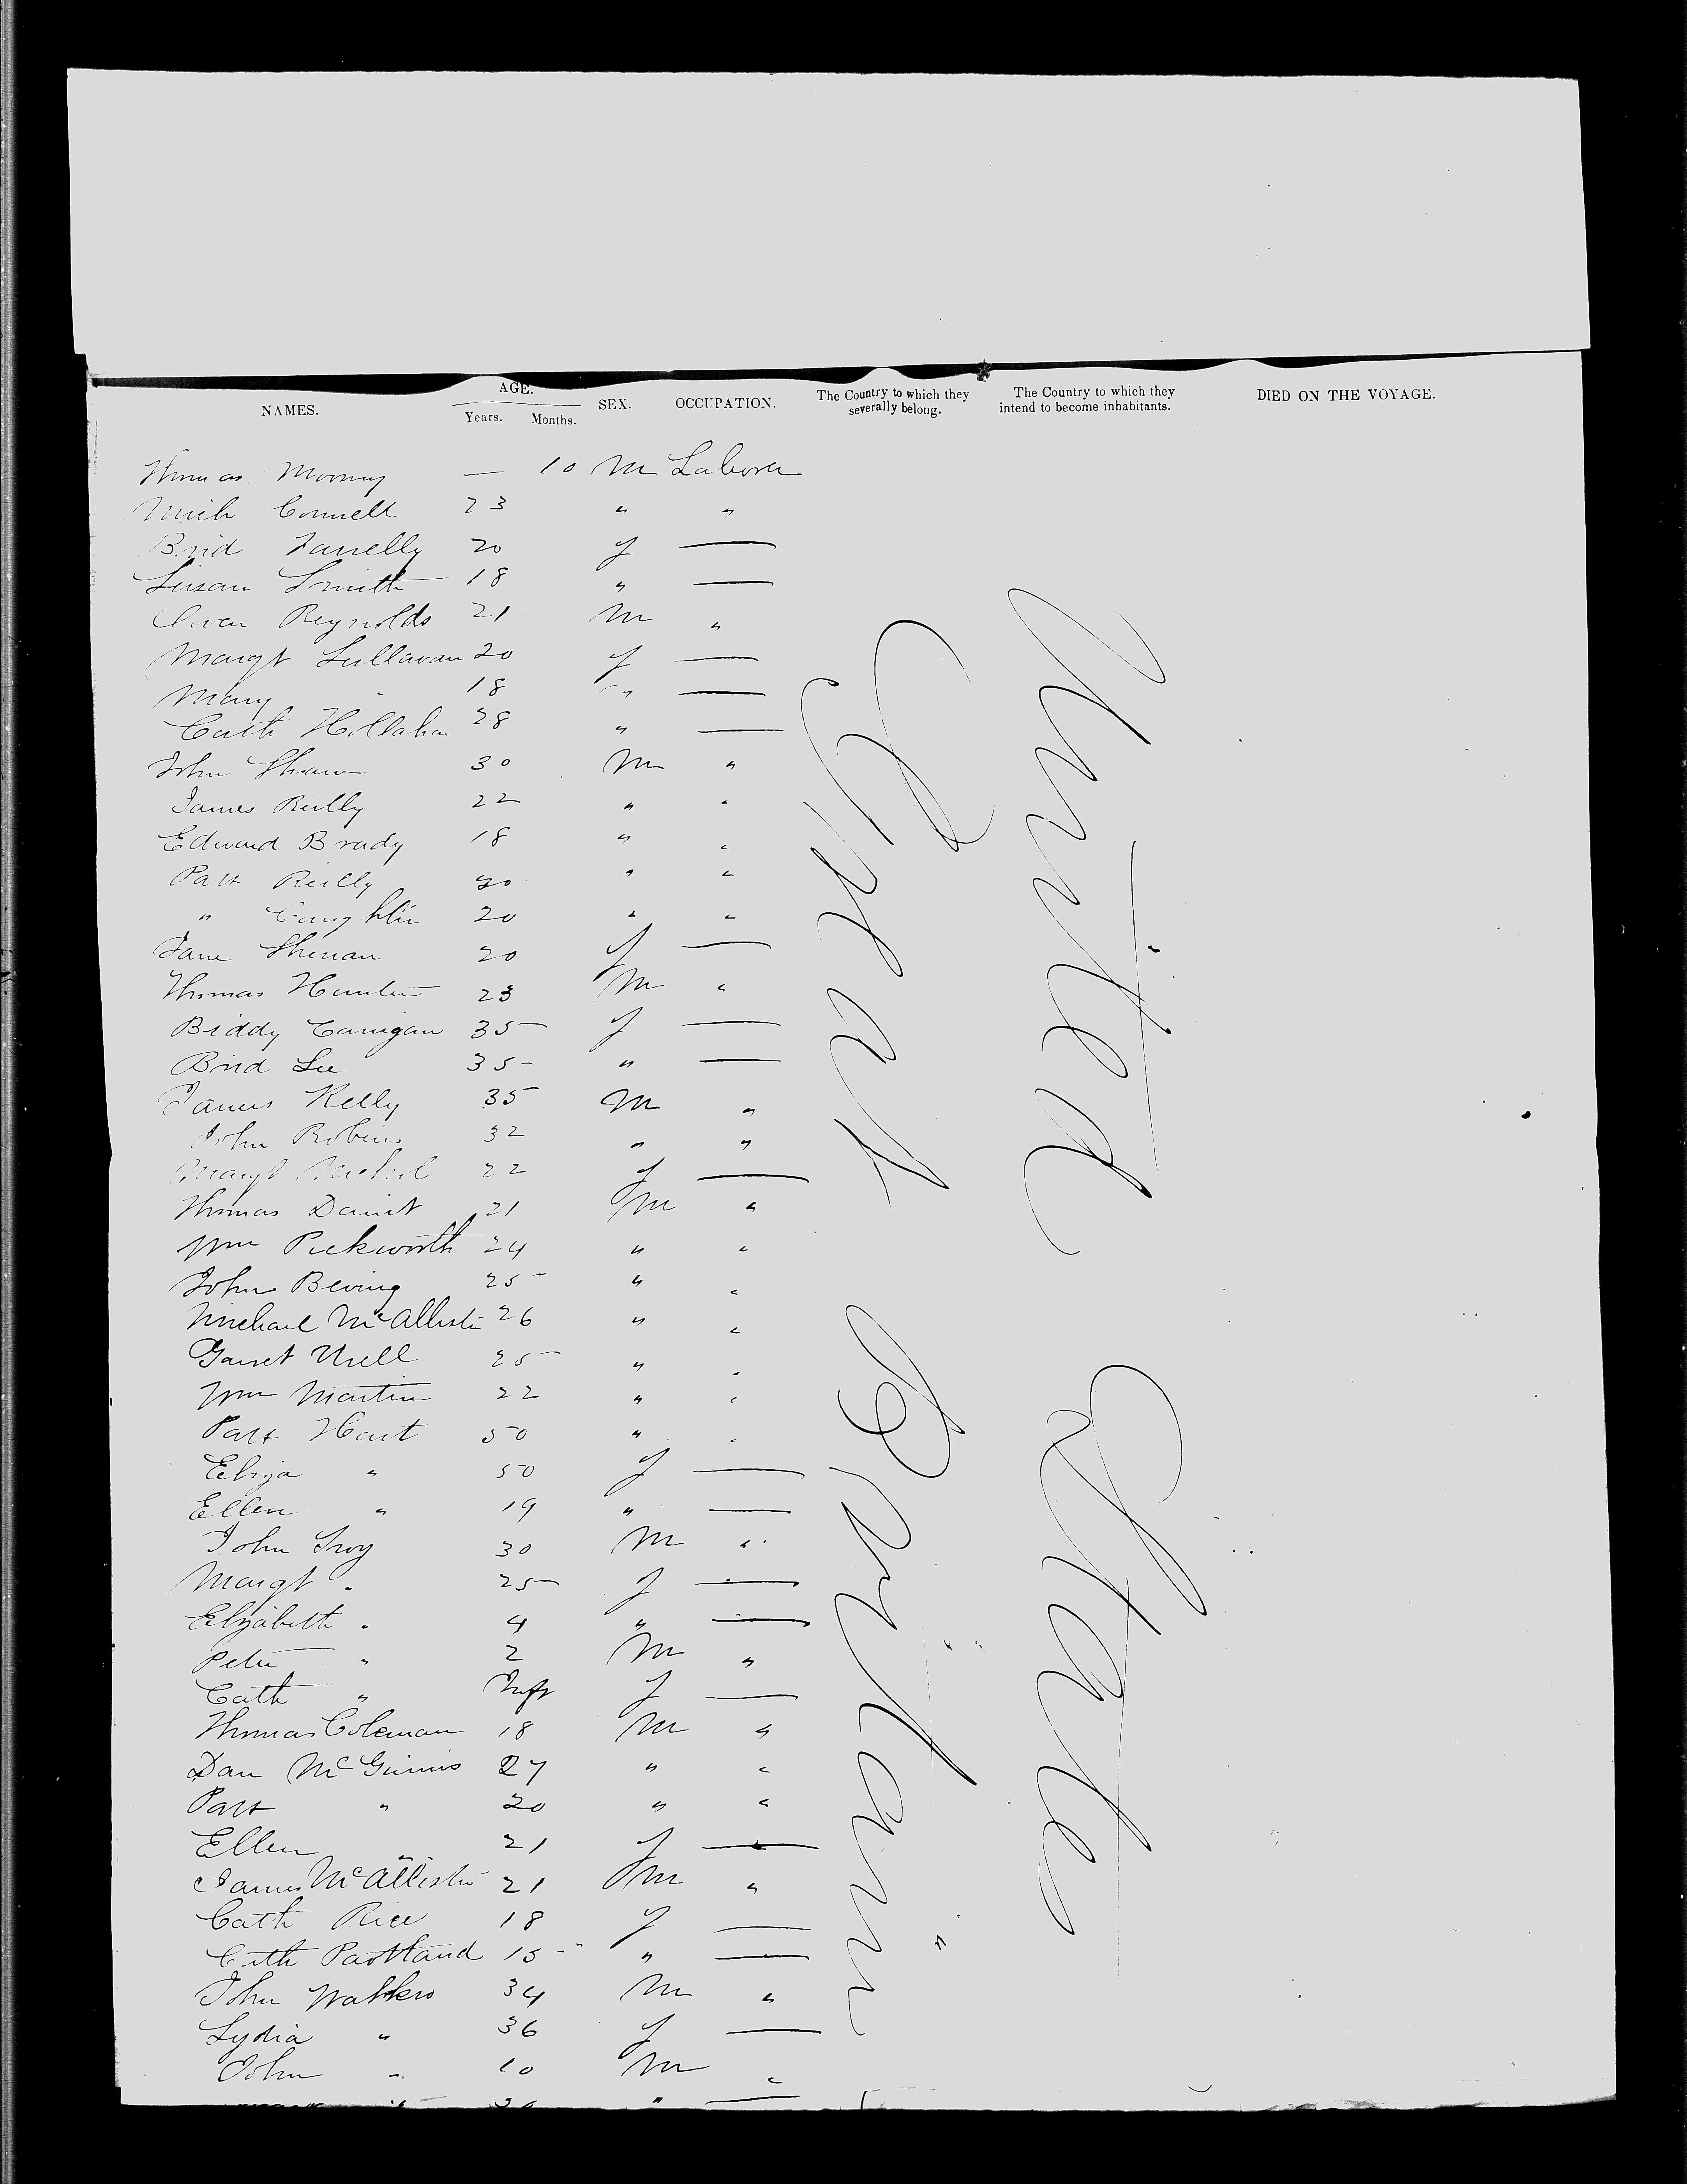 NAMES. AGE. Years. Months. SEX. OCCUPATION. The Country to which they severally belong. The Country to which they intend to become inhabitants. DIED ON THE VOYAGE.
Thomas Mooney — 10 m Laborer
Mich Connell 23 " "
Brid Farrelly 20 f —
Susan Smith 18 " —
Owen Reynolds 21 m "
Margt Sullavan 20 f —
Mary " 18 " —
Cath Hollahan 28 " —
John Shaw 30 m "
James Reilly 22 " "
Edward Brady 18 " "
Patt Reilly 20 " "
" Coughlin 20 " "
Jane 20 f —
Thomas 23 m "
Biddy Carrigan 35 f —
Brid Lee 35 " —
James Kelly 35 m "
John Robins 32 " "
Margt 22 f —
Thomas 21 m "
Wm Pickworth 24 " "
John Beving 25 " "
Michael McAllister 26 " "
Garret Urell 25 " "
Wm Martin 22 " "
Patt Hart 50 " "
Eliza " 50 f —
Ellen " 19 " —
John Troy 30 m "
Margt " 25 f —
Elizabeth " 4 " —
Peter " 2 m "
Cath " Inft f —
Thomas Coleman 18 m "
Dan McGinnis 27 " "
Patt " 20 " "
Ellen " 21 f —
James McAllister 21 m "
Cath Rice 18 f —
Cath Partland 15 " —
John Watkers 34 m "
Lydia " 36 f —
John " 10 m "
Great Britain
United State